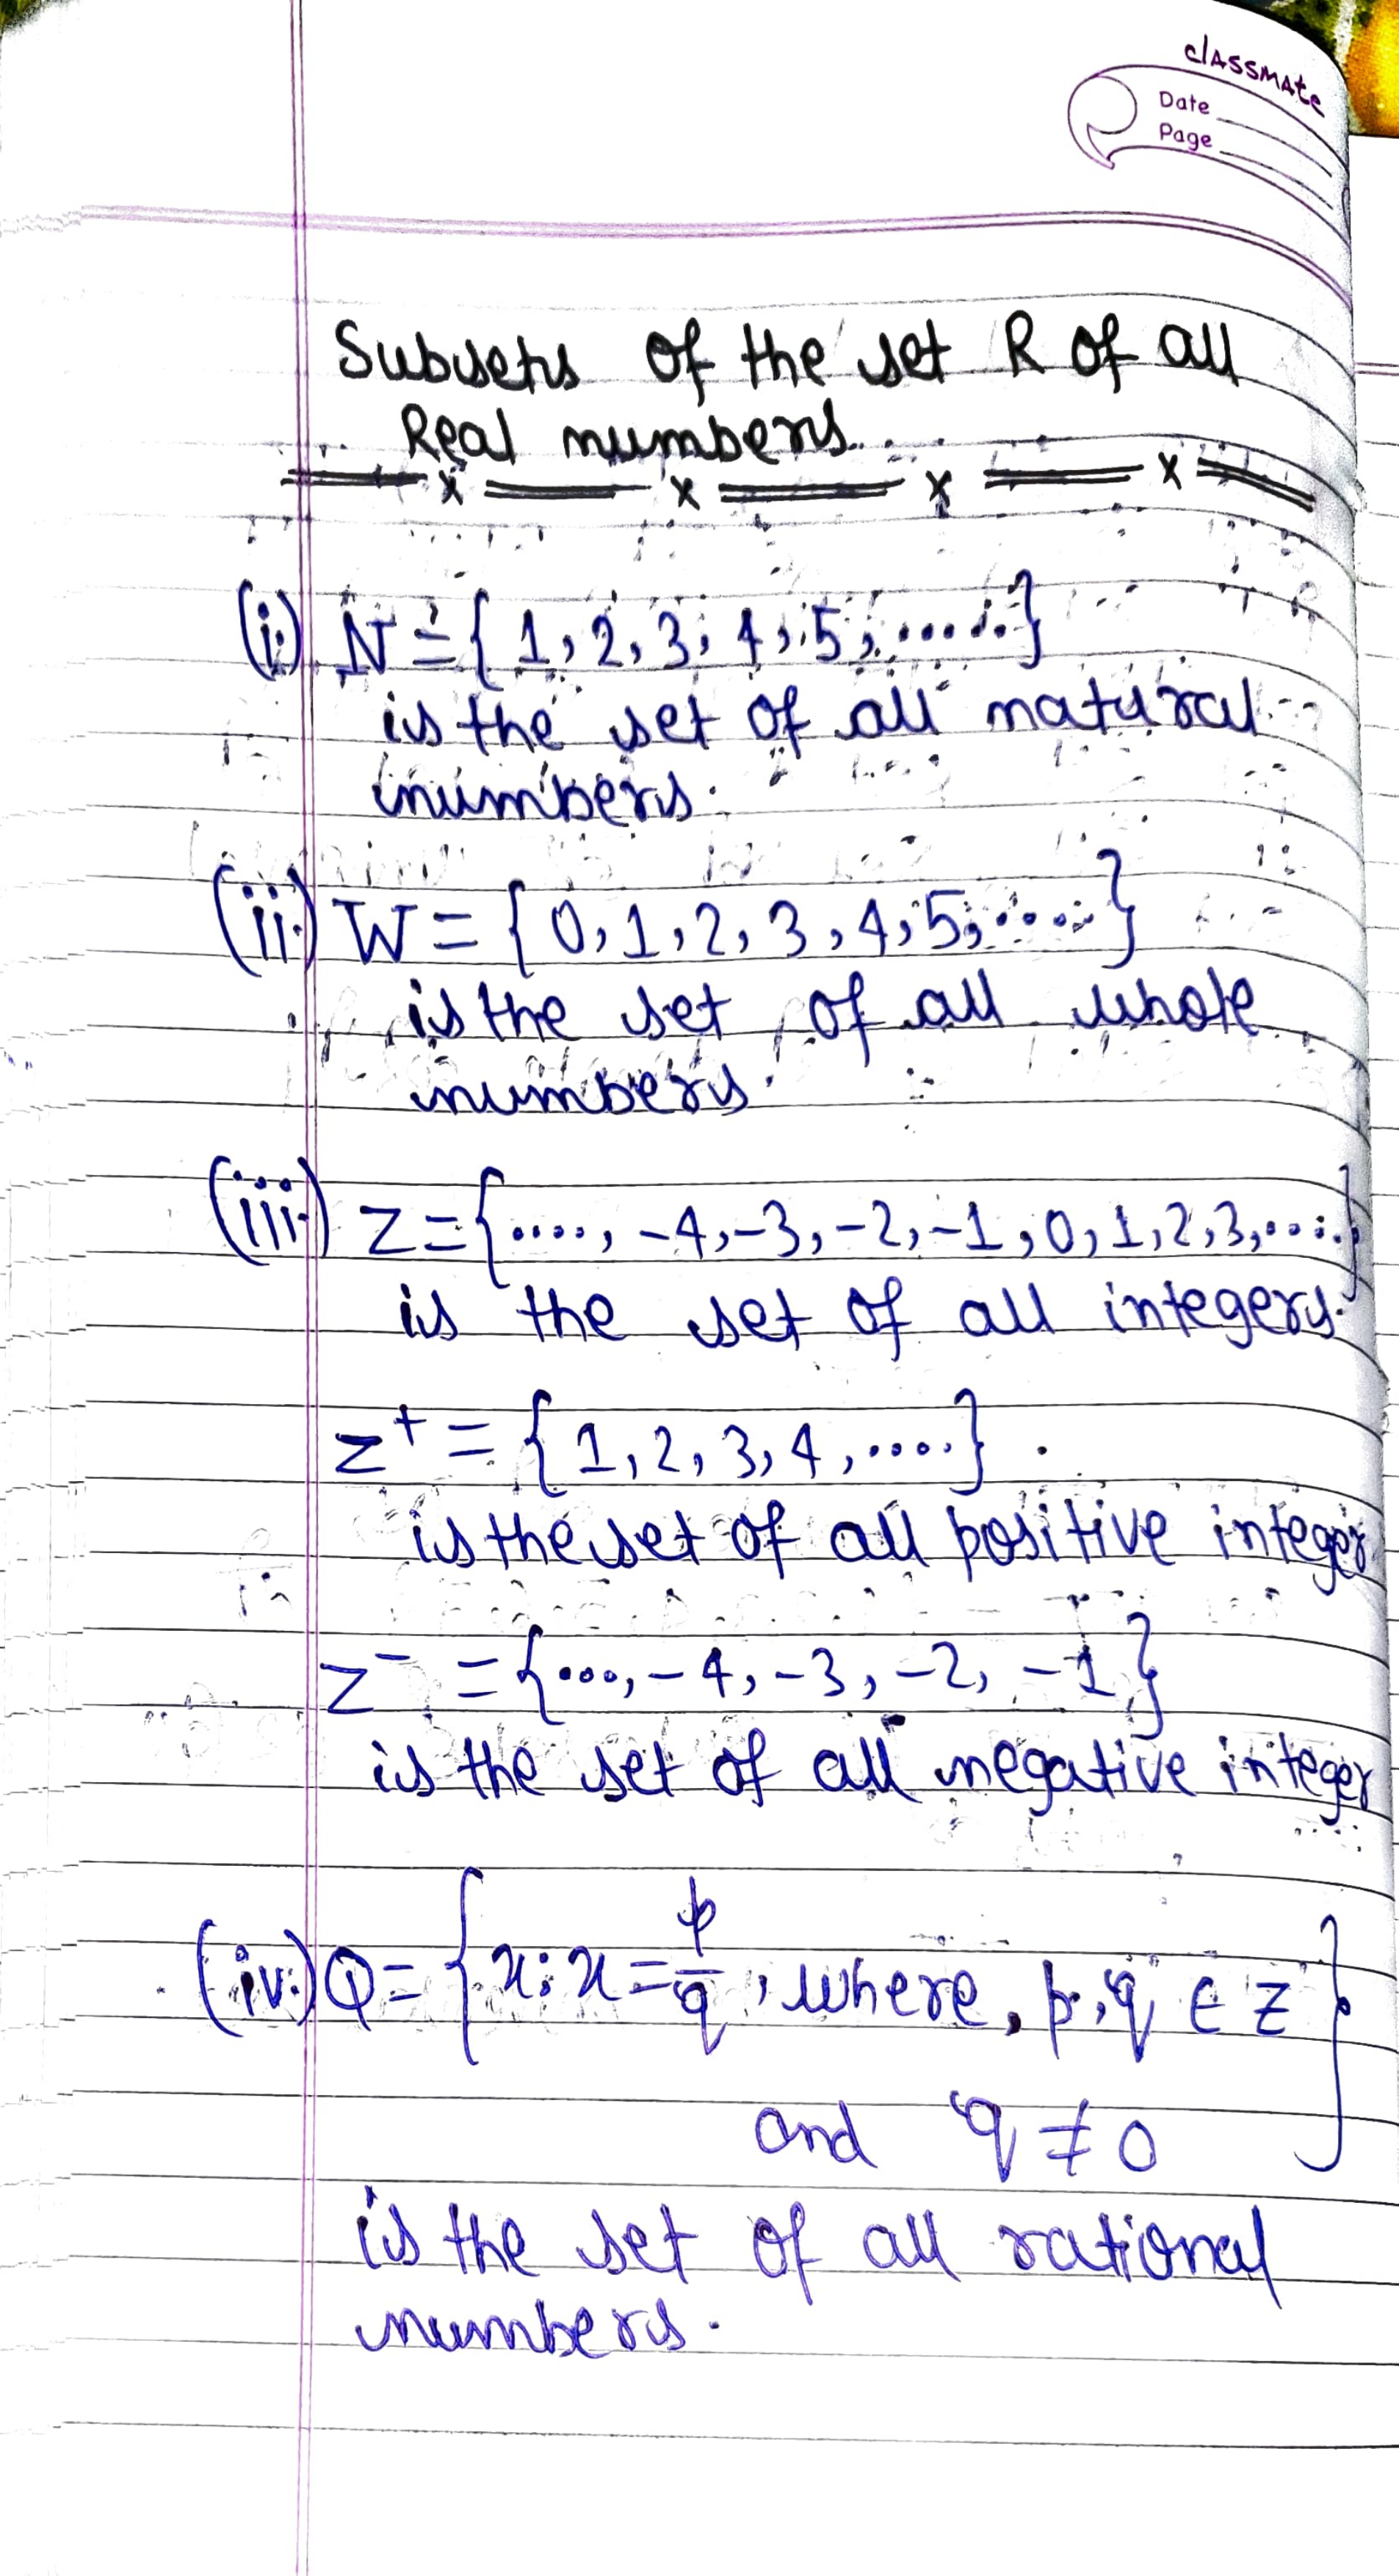 classmate
Date
Page
Subsets of the set R of all
Real numbers
(i) N = { 1, 2, 3, 4, 5, ..... }
is the set of all natural
numbers.
(ii.) W = { 0, 1, 2, 3, 4, 5, ..... }
is the set of all whole
numbers.
(iii.) Z = { ...., -4, -3, -2, -1, 0, 1, 2, 3, .... }
is the set of all integers.
Z⁺ = { 1, 2, 3, 4, .... }
is the set of all positive integer
Z⁻ = { ..., -4, -3, -2, -1 }
is the set of all negative integer
(iv.) Q = { x : x = p/q , where, p, q ∈ Z
and q ≠ 0 }
is the set of all rational
numbers.